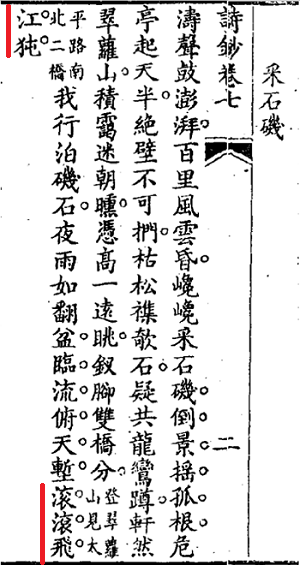 采石磯
詩鈔卷七
二
濤聲鼓澎湃百里風雲昏巉巉采石磯倒景揺孤根危
亭起天半絶壁不可捫枯松襍欹石疑共龍鸞蹲軒然
翠蘿山積靄迷朝曛憑高一遠眺釵腳雙橋分登翠蘿山見太
平路南北二橋我行泊磯石夜雨如翻盆臨流俯天塹滾滾飛
江㹠